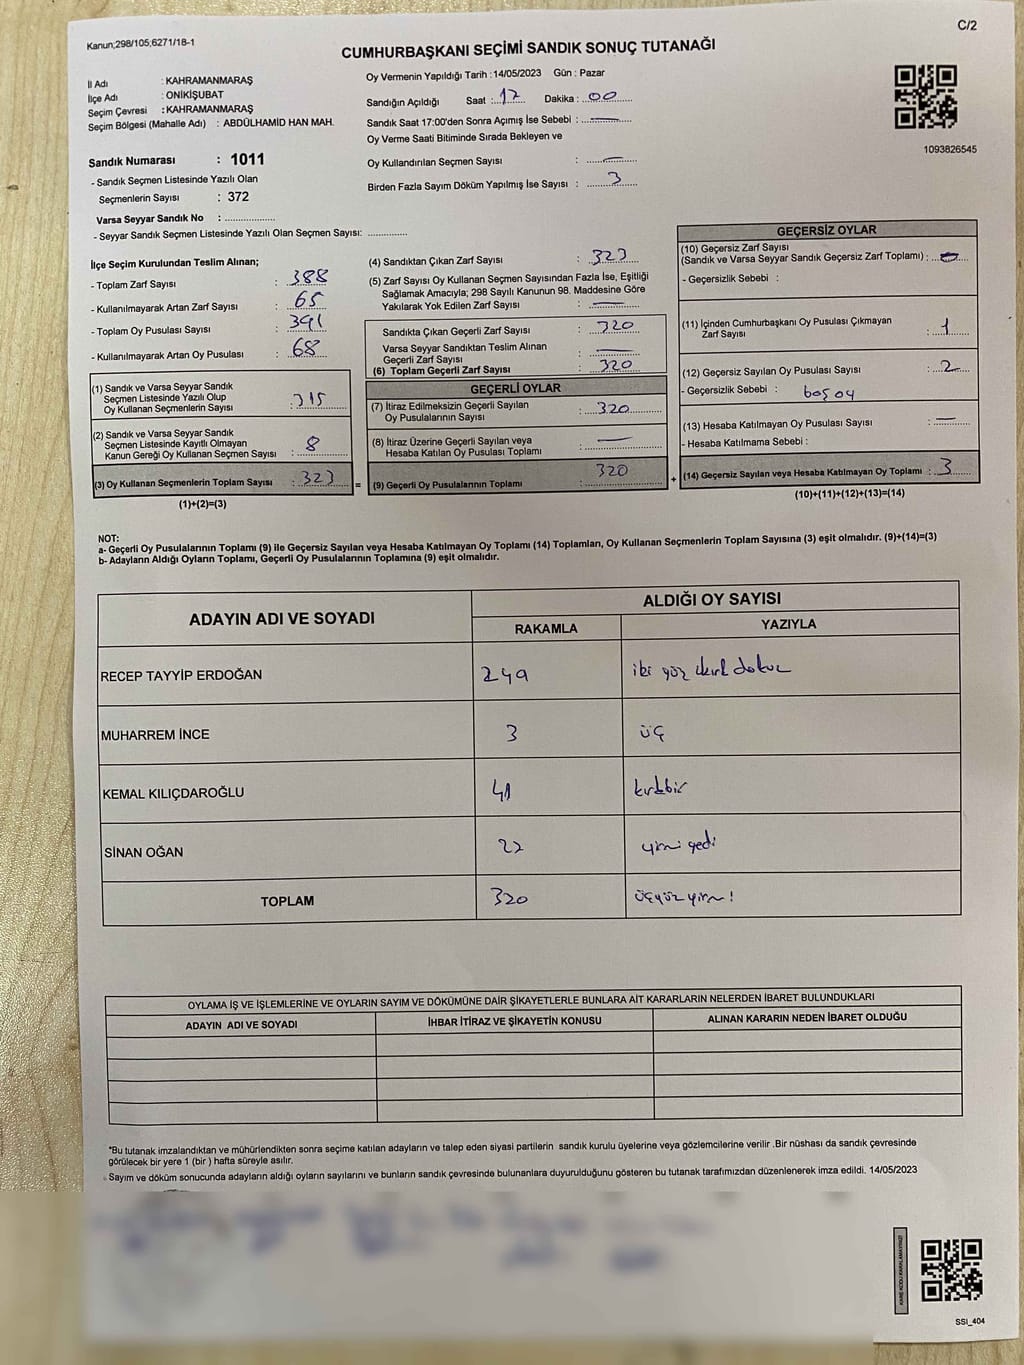 Kanun;298/105;6271/18-1
C/2
CUMHURBAŞKANI SEÇİMİ SANDIK SONUÇ TUTANAĞI
İl Adı : KAHRAMANMARAŞ
İlçe Adı : ONİKİŞUBAT
Seçim Çevresi : KAHRAMANMARAŞ
Seçim Bölgesi (Mahalle Adı) : ABDÜLHAMİD HAN MAH.
Sandık Numarası : 1011
- Sandık Seçmen Listesinde Yazılı Olan
Seçmenlerin Sayısı : 372
Varsa Seyyar Sandık No : ..................
- Seyyar Sandık Seçmen Listesinde Yazılı Olan Seçmen Sayısı: ..............
Oy Vermenin Yapıldığı Tarih : 14/05/2023 Gün : Pazar
Sandığın Açıldığı Saat : 17 Dakika : 00
Sandık Saat 17:00'den Sonra Açımış İse Sebebi : —
Oy Verme Saati Bitiminde Sırada Bekleyen ve
Oy Kullandırılan Seçmen Sayısı : —
Birden Fazla Sayım Döküm Yapılmış İse Sayısı : 3
1093826545
İlçe Seçim Kurulundan Teslim Alınan;
- Toplam Zarf Sayısı : 388
- Kullanılmayarak Artan Zarf Sayısı : 65
- Toplam Oy Pusulası Sayısı : 391
- Kullanılmayarak Artan Oy Pusulası : 68
(1) Sandık ve Varsa Seyyar Sandık
Seçmen Listesinde Yazılı Olup
Oy Kullanan Seçmenlerin Sayısı : 315
(2) Sandık ve Varsa Seyyar Sandık
Seçmen Listesinde Kayıtlı Olmayan
Kanun Gereği Oy Kullanan Seçmen Sayısı : 8
(3) Oy Kullanan Seçmenlerin Toplam Sayısı : 323 =
(1)+(2)=(3)
(4) Sandıktan Çıkan Zarf Sayısı : 323
(5) Zarf Sayısı Oy Kullanan Seçmen Sayısından Fazla İse, Eşitliği
Sağlamak Amacıyla; 298 Sayılı Kanunun 98. Maddesine Göre
Yakılarak Yok Edilen Zarf Sayısı : —
Sandıkta Çıkan Geçerli Zarf Sayısı : 320
Varsa Seyyar Sandıktan Teslim Alınan
Geçerli Zarf Sayısı : —
(6) Toplam Geçerli Zarf Sayısı : 320
GEÇERLİ OYLAR
(7) İtiraz Edilmeksizin Geçerli Sayılan
Oy Pusulalarının Sayısı : 320
(8) İtiraz Üzerine Geçerli Sayılan veya
Hesaba Katılan Oy Pusulası Toplamı : —
(9) Geçerli Oy Pusulalarının Toplamı : 320 +
GEÇERSİZ OYLAR
(10) Geçersiz Zarf Sayısı
(Sandık ve Varsa Seyyar Sandık Geçersiz Zarf Toplamı) :
- Geçersizlik Sebebi :
(11) İçinden Cumhurbaşkanı Oy Pusulası Çıkmayan
Zarf Sayısı : 1
(12) Geçersiz Sayılan Oy Pusulası Sayısı : 2
- Geçersizlik Sebebi : boş oy
(13) Hesaba Katılmayan Oy Pusulası Sayısı : —
- Hesaba Katılmama Sebebi :
(14) Geçersiz Sayılan veya Hesaba Katılmayan Oy Toplamı : 3
(10)+(11)+(12)+(13)=(14)
NOT:
a- Geçerli Oy Pusulalarının Toplamı (9) ile Geçersiz Sayılan veya Hesaba Katılmayan Oy Toplamı (14) Toplamları, Oy Kullanan Seçmenlerin Toplam Sayısına (3) eşit olmalıdır. (9)+(14)=(3)
b- Adayların Aldığı Oyların Toplamı, Geçerli Oy Pusulalarının Toplamına (9) eşit olmalıdır.
ADAYIN ADI VE SOYADI
ALDIĞI OY SAYISI
RAKAMLA YAZIYLA
RECEP TAYYİP ERDOĞAN 249 iki yüz kırk dokuz
MUHARREM İNCE 3 üç
KEMAL KILIÇDAROĞLU 41 kırkbir
SİNAN OĞAN 27 yirmi yedi
TOPLAM 320 üçyüz yirmi
OYLAMA İŞ VE İŞLEMLERİNE VE OYLARIN SAYIM VE DÖKÜMÜNE DAİR ŞİKAYETLERLE BUNLARA AİT KARARLARIN NELERDEN İBARET BULUNDUKLARI
ADAYIN ADI VE SOYADI İHBAR İTİRAZ VE ŞİKAYETİN KONUSU ALINAN KARARIN NEDEN İBARET OLDUĞU
*Bu tutanak imzalandıktan ve mühürlendikten sonra seçime katılan adayların ve talep eden siyasi partilerin sandık kurulu üyelerine veya gözlemcilerine verilir .Bir nüshası da sandık çevresinde
görülecek bir yere 1 (bir ) hafta süreyle asılır.
Sayım ve döküm sonucunda adayların aldığı oyların sayılarını ve bunların sandık çevresinde bulunanlara duyurulduğunu gösteren bu tutanak tarafımızdan düzenlenerek imza edildi. 14/05/2023
KARE KODU KARALAMAYINIZ!
SSI_404